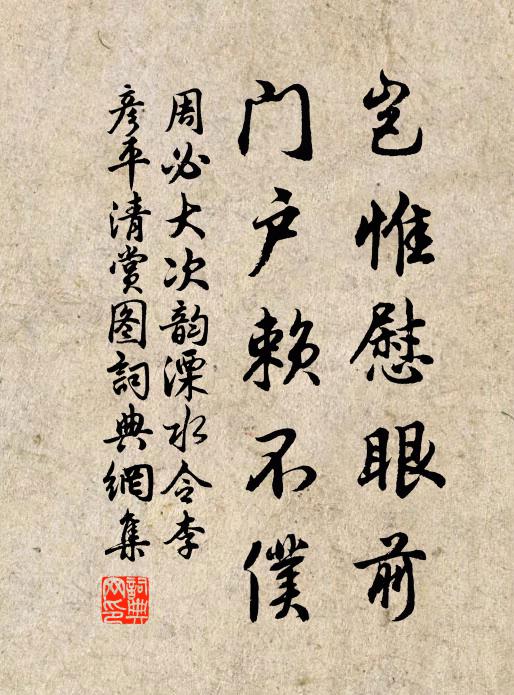 岂惟慰眼前
门户赖不僕
周必大次韵溧水令李
彦平清赏图詞典網集
詞典网印